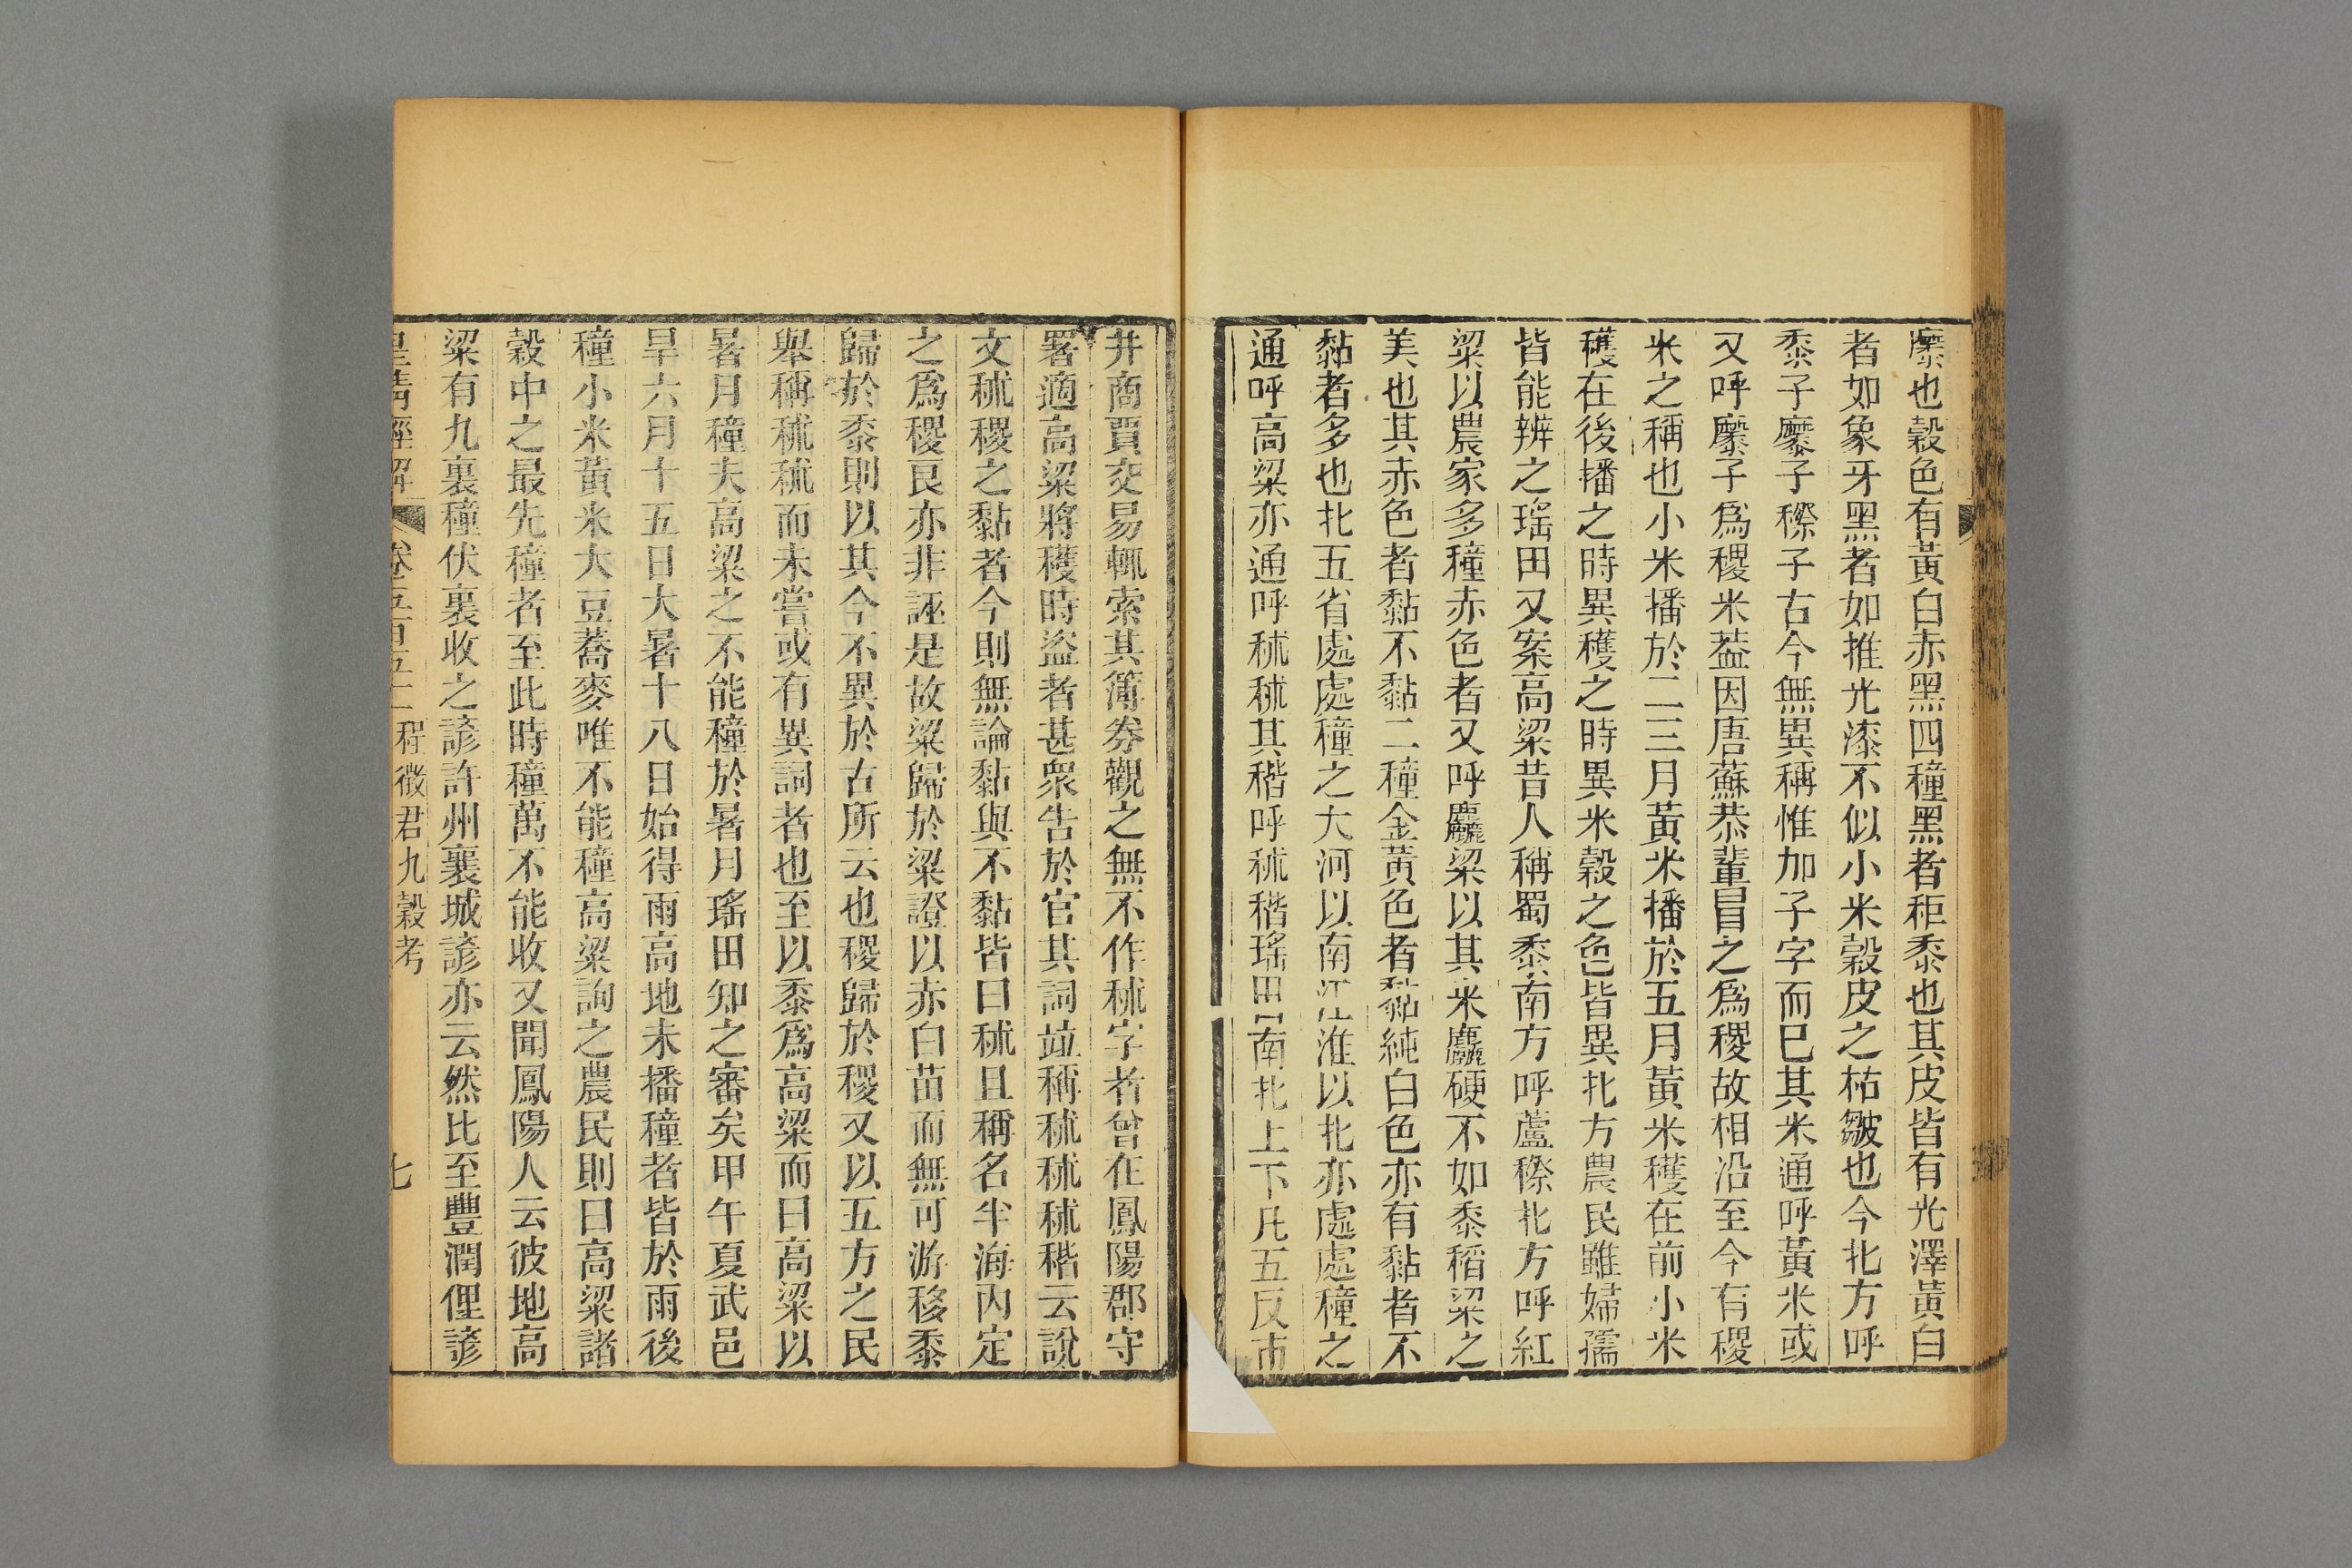 穈也穀色有黃白赤黑四種黑者秬黍也其皮皆有光澤黃白
者如象牙黑者如推光漆不似小米穀皮之枯皺也今北方呼
黍子穈子穄子古今無異稱惟加子字而已其米通呼黃米或
又呼穈子為稷米葢因唐蘇恭輩冒之為稷故相沿至今有稷
米之稱也小米播於二三月黃米播於五月黃米穫在前小米
穫在後播之時異穫之時異米穀之色皆異北方農民雖婦孺
皆能辨之瑤田又案高粱昔人稱蜀黍南方呼蘆穄北方呼紅
粱以農家多穜赤色者又呼麤粱以其米麤硬不如黍稻粱之
美也其赤色者黏不黏二穜金黃色者黏純白色亦有黏者不
黏者多也北五省處處穜之大河以南江淮以北亦處處穜之
通呼高粱亦通呼秫秫其稭呼秫稭瑤田南北上下凡五反市
井商賈交易輒索其簿券觀之無不作秫字者曾在鳳陽郡守
署適高粱將穫時盜者甚衆告於官其詞竝稱秫秫秫稭云說
文秫稷之黏者今則無論黏與不黏皆曰秫且稱名半海內定
之爲稷良亦非誣是故粱歸於粱證以赤白苗而無可游移黍
歸於黍則以其今不異於古所云也稷歸於稷又以五方之民
舉稱秫秫而未嘗或有異詞者也至以黍爲高粱而曰高粱以
暑月穜夫高粱之不能穜於暑月瑤田知之審矣甲午夏武邑
旱六月十五日大暑十八日始得雨高地未播穜者皆於雨後
穜小米黃米大豆蕎麥唯不能穜高粱詢之農民則曰高粱諸
穀中之最先穜者至此時穜萬不能收又聞鳳陽人云彼地高
粱有九裏穜伏裏收之諺許州襄城諺亦云然比至豐潤俚諺
皇清經解 卷五百四十二 程徵君九穀考 七